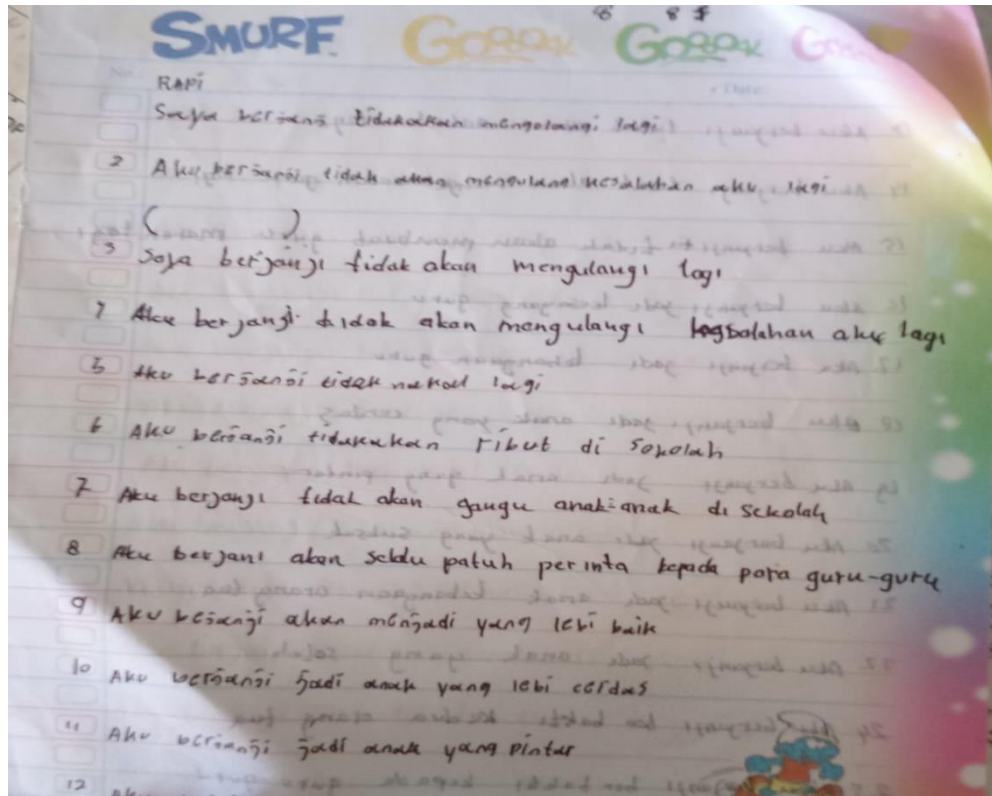 SMURF Gorrrk Gorrrk
RAPi
Saya berjanji tidakakan mengolangi lagi
2 Aku berjanji tidak akan mengulang kesalahan aku lagi
( )
3 Saya berjanji tidak akan mengulangi lagi
Aku berjangi tidak akan mengulangi aku lagi
5 Aku berjanji tidak nakal lagi
6 Aku berjanji tidakakan ribut di Sokolah
7 Aku berjanji tidak akan gangu anak-anak di sekolah
8 Aku berjani akan selalu patuh perinta kepada para guru-guru
9 Aku bejanji akan menjadi yang lebi baik
10 Aku berjanji jadi anak yang lebi cerdas
11 Aku berjanji jadi anak yang pintar
12